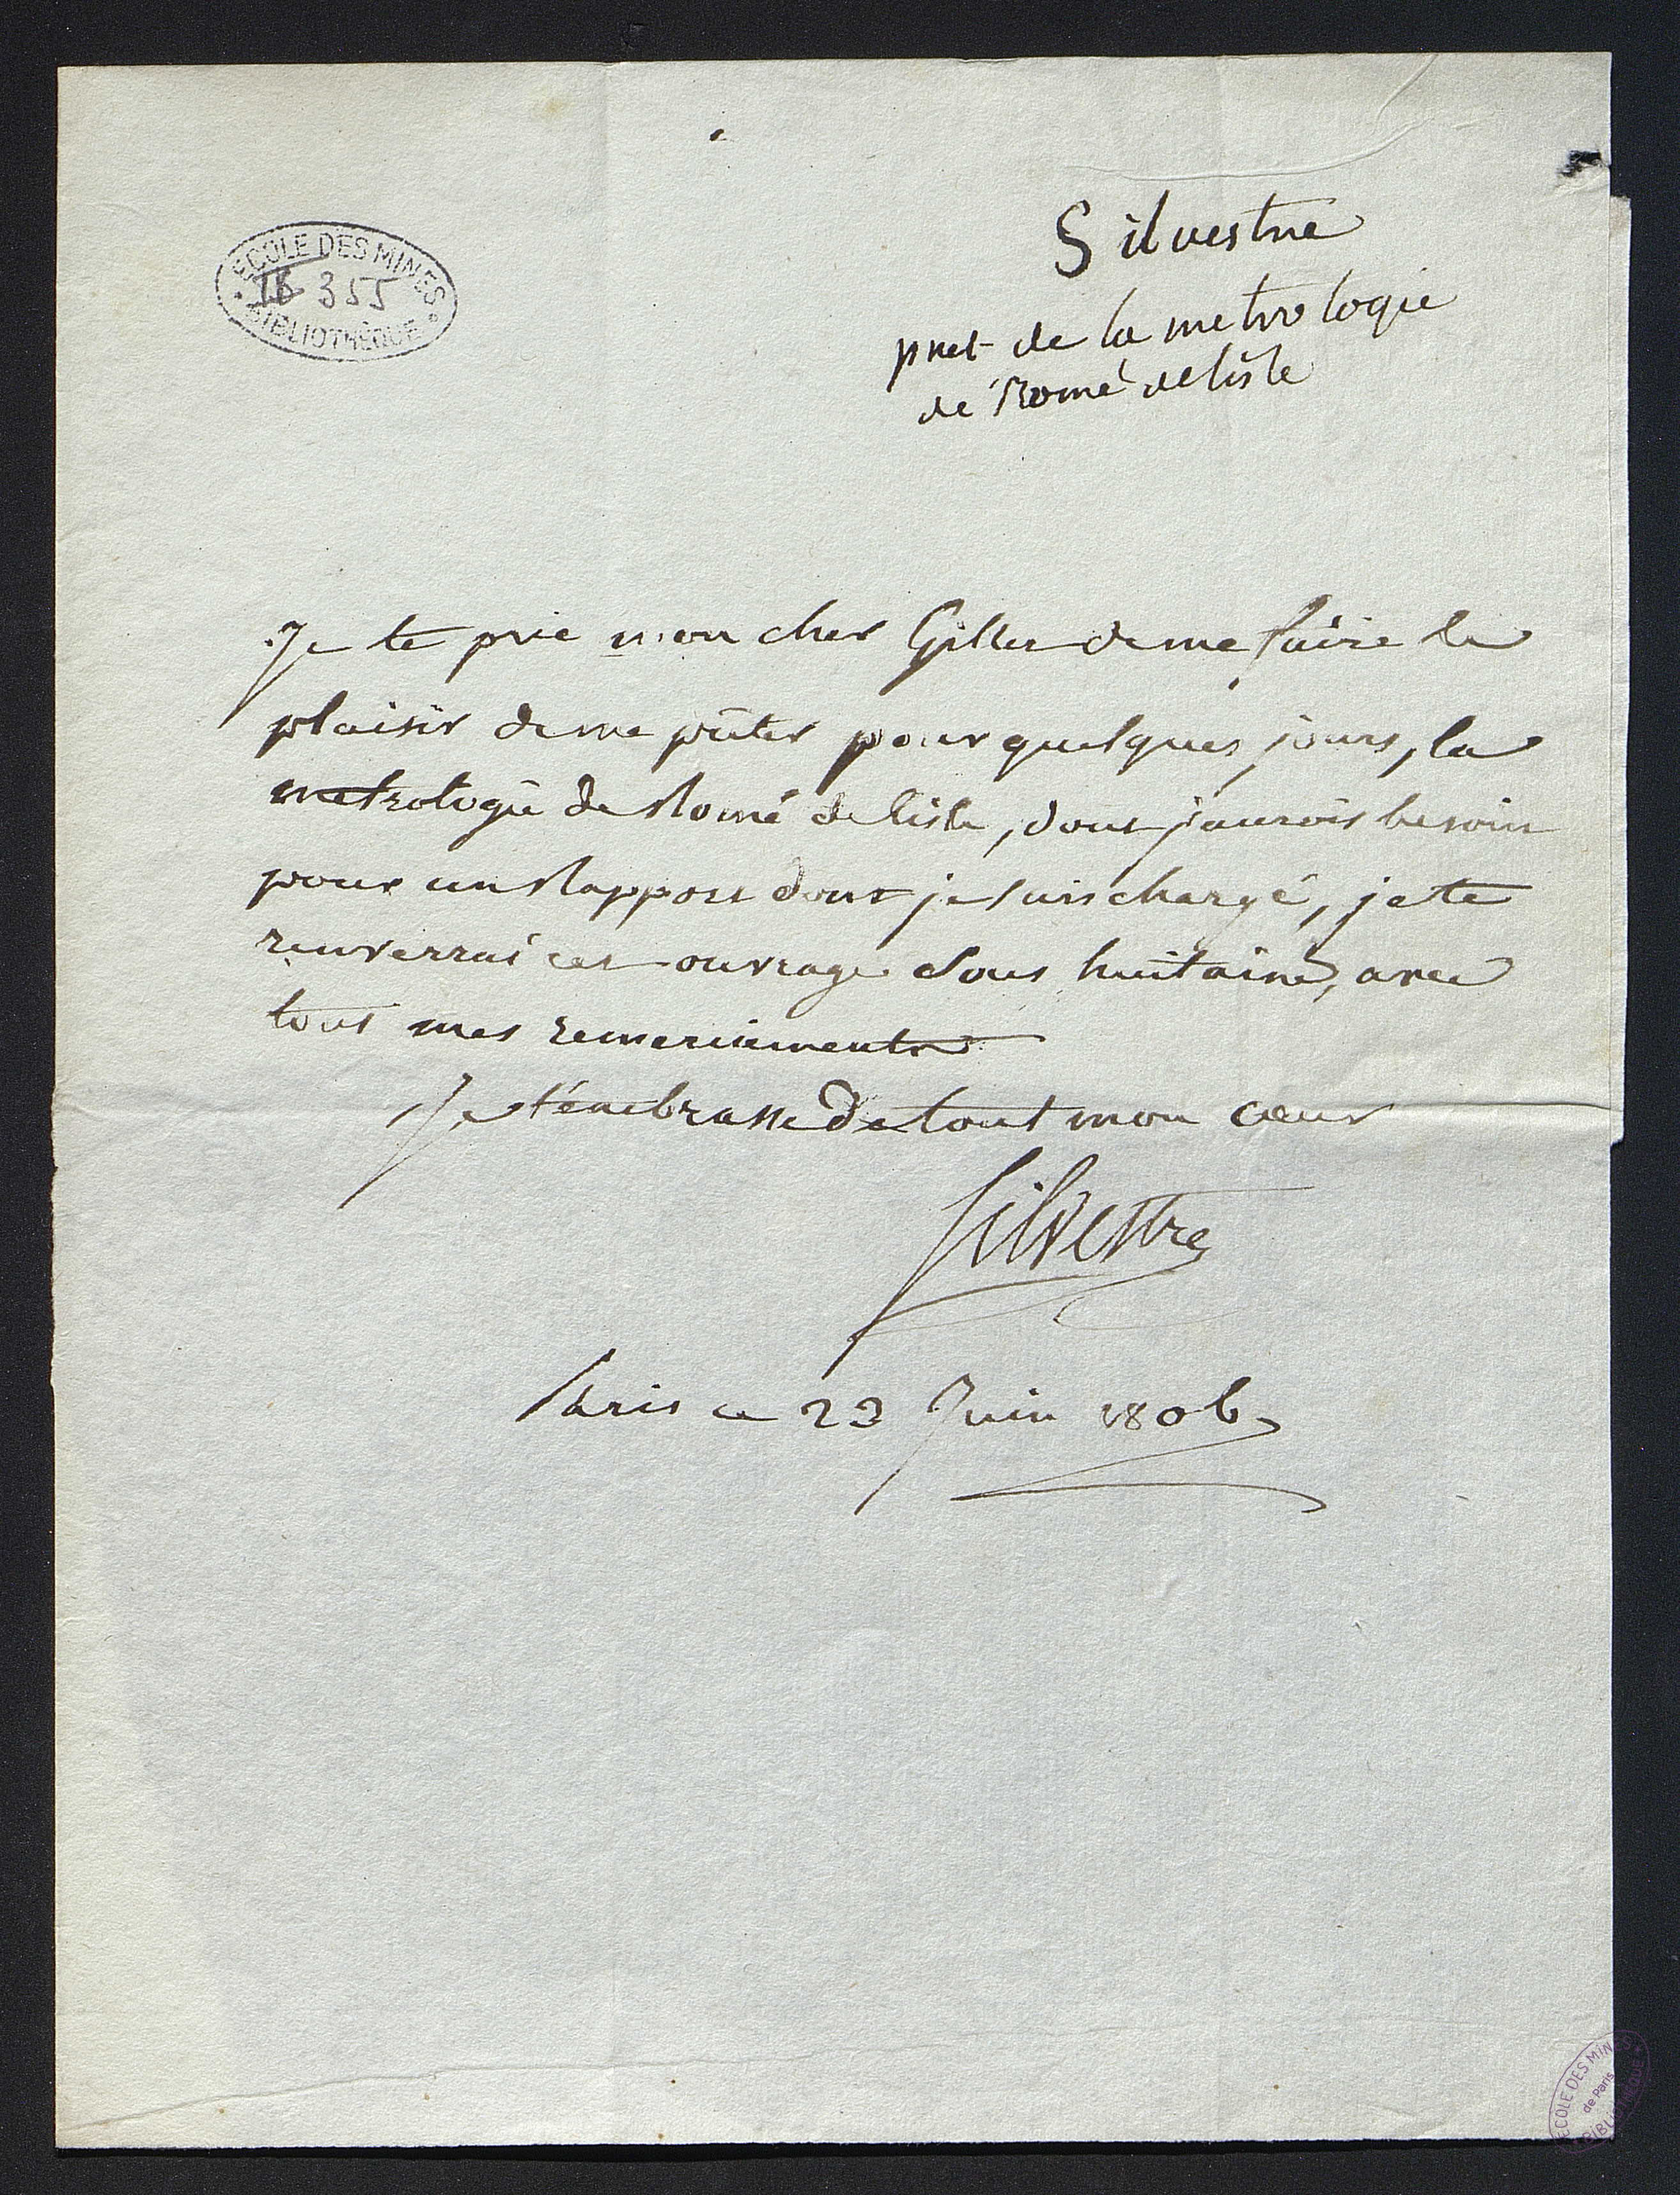 ECOLE DES MINES
355
BIBLIOTHÈQUE
Silvestre
pret de la metrologie
de Romé delisle
Je te prie mon cher Giller de me faire le
plaisir de me prêter pour quelques jours, la
metrologie de Romé de lisle, dont j'aurois besoin
pour un Rapport dont je suis chargé, je te
renverrai cet ouvrage sous huitaine, avec
tous mes remerciments
Je t'embrasse de tout mon cœur
Silvestre
Paris ce 23 Juin 1806
ECOLE DES MINES
de Paris
BIBLIOTHEQUE